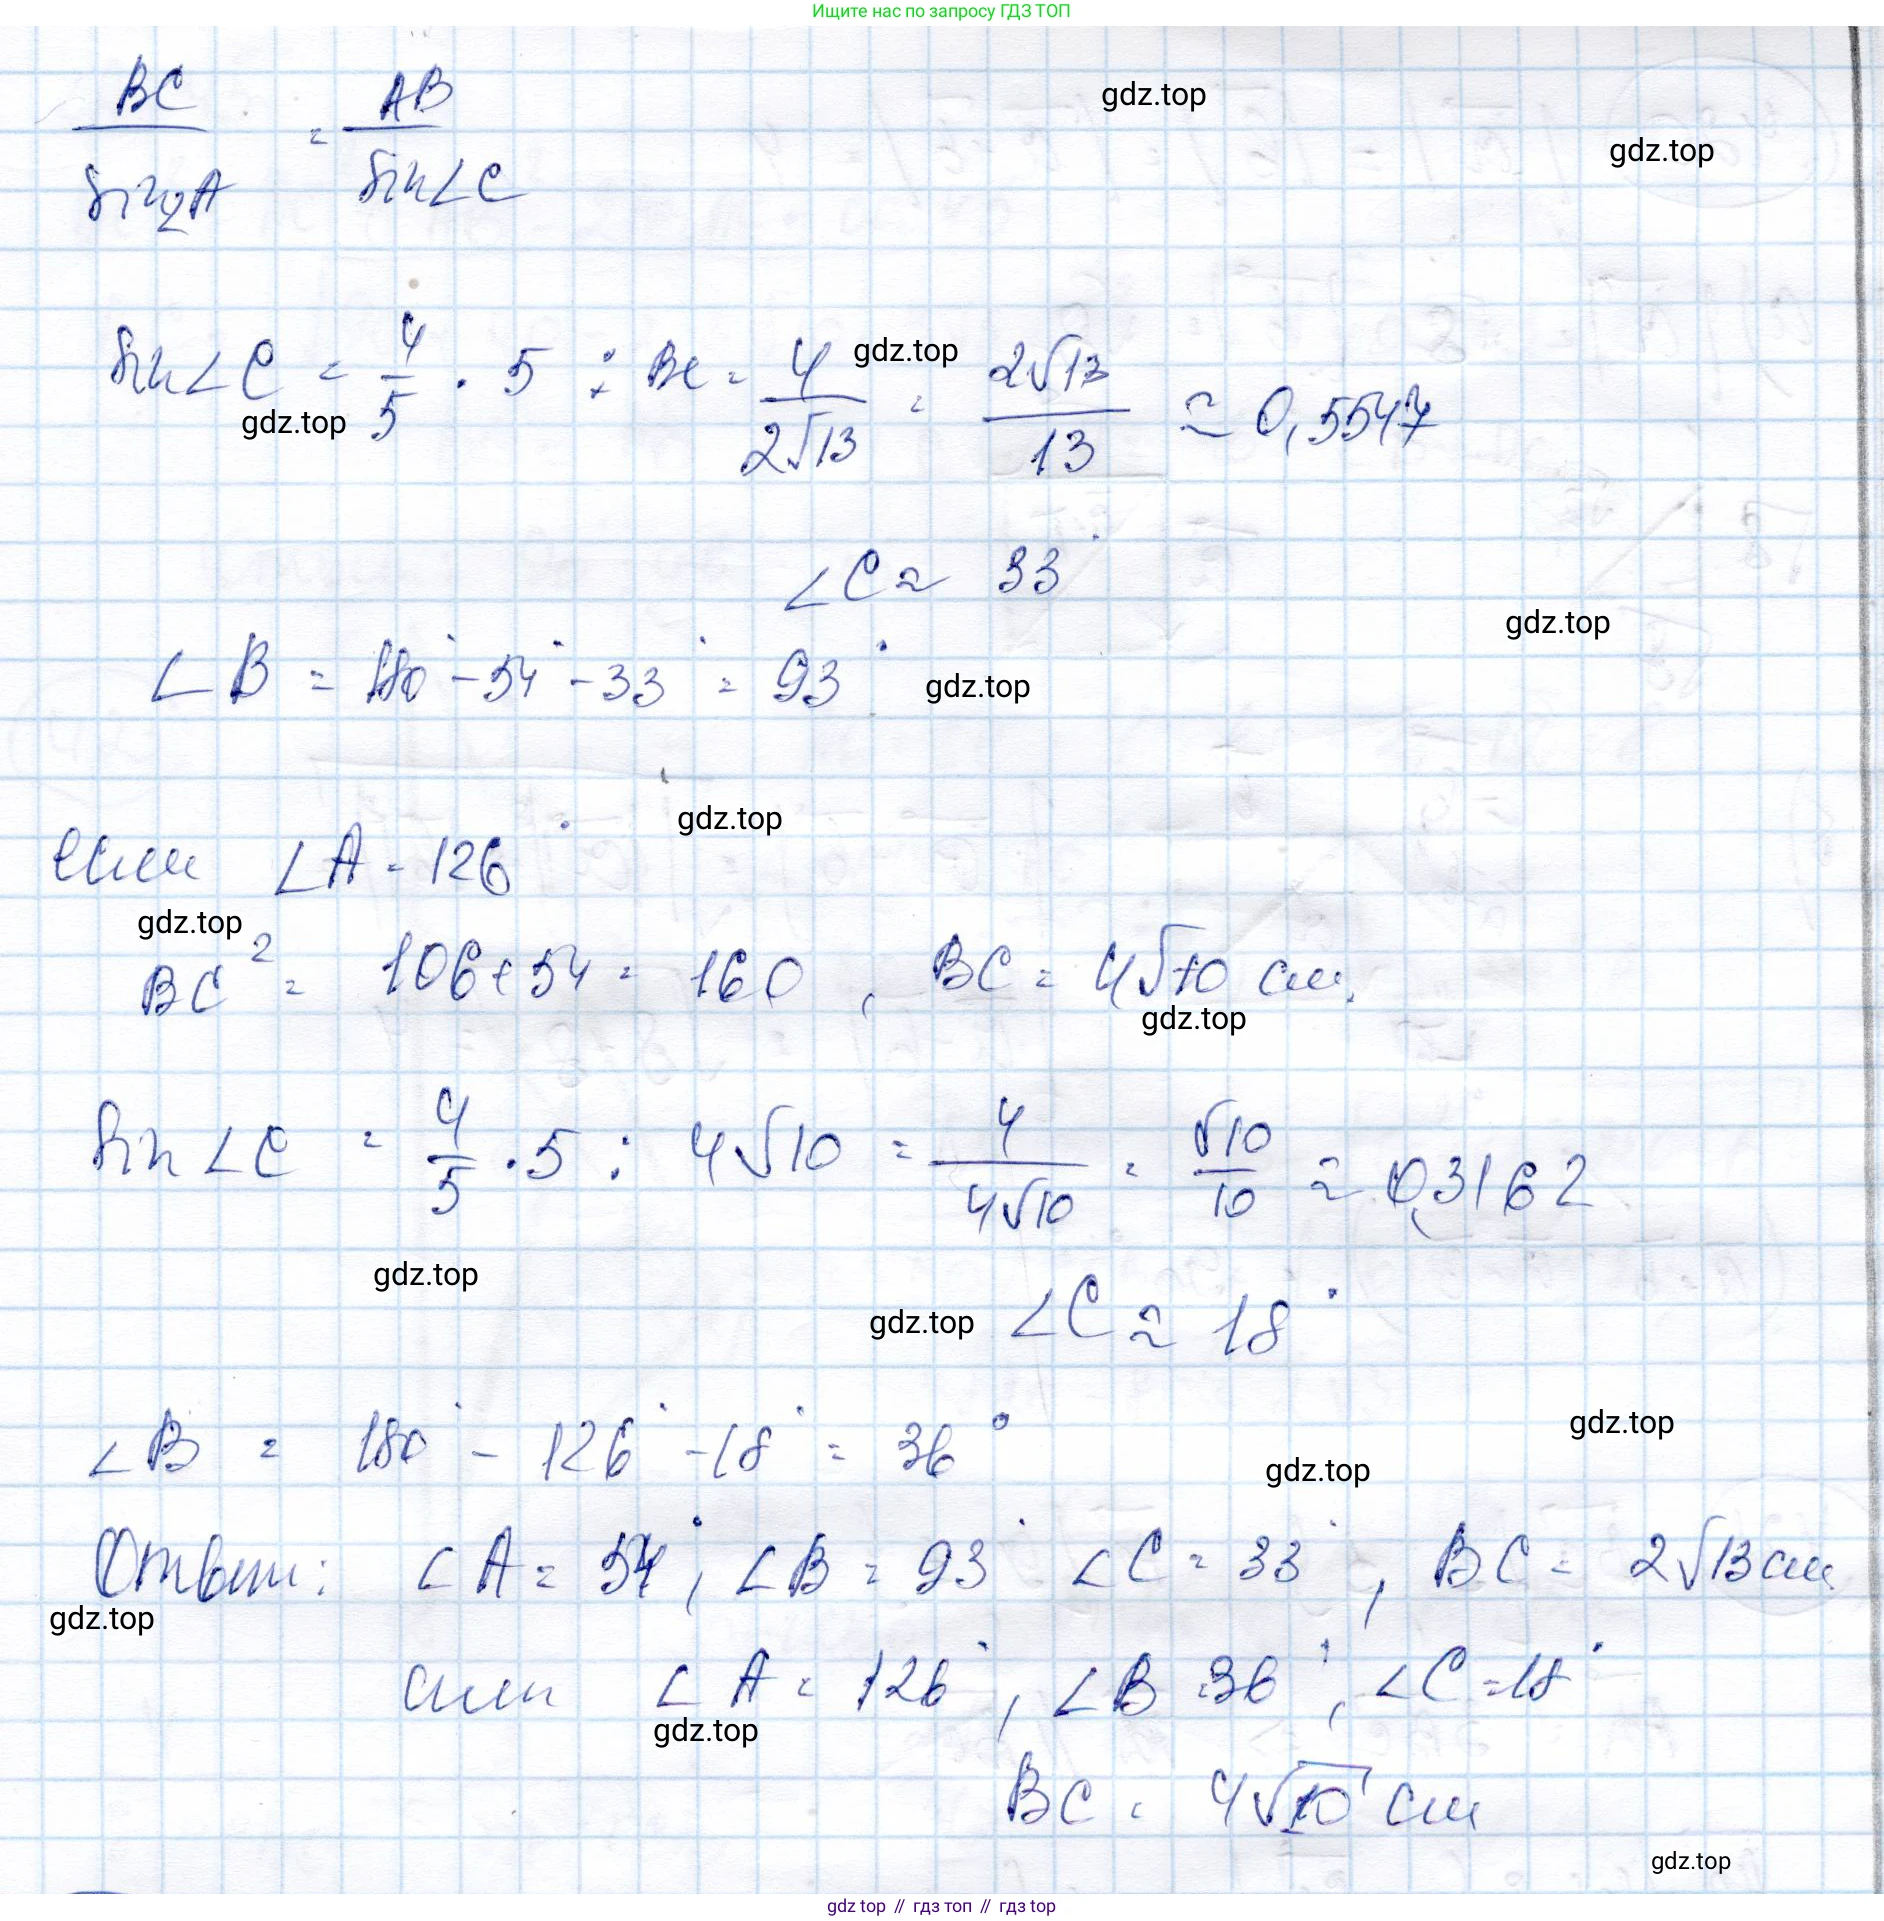 Ищите нас по запросу ГДЗ ТОП
BC / sin∠A = AB / sin∠C
gdz.top
gdz.top
sin∠C = 4/5 · 5 : BC = 4/2√13 = 2√13/13 ≈ 0,5547
gdz.top
gdz.top
∠C ≈ 33°
gdz.top
∠B = 180° - 54° - 33° = 93°
gdz.top
gdz.top
если ∠A = 126°
gdz.top
BC² = 106 + 54 = 160, BC = 4√10 см.
gdz.top
sin∠C = 4/5 · 5 : 4√10 = 4/4√10 = √10/10 ≈ 0,3162
gdz.top
gdz.top
∠C ≈ 18°
gdz.top
∠B = 180° - 126° - 18° = 36°
gdz.top
Ответ: ∠A = 54°, ∠B = 93° ∠C = 33°, BC = 2√13 см
gdz.top
или ∠A = 126°, ∠B = 36°, ∠C = 18°
gdz.top
BC = 4√10 см
gdz.top
gdz top // гдз топ // гдз top